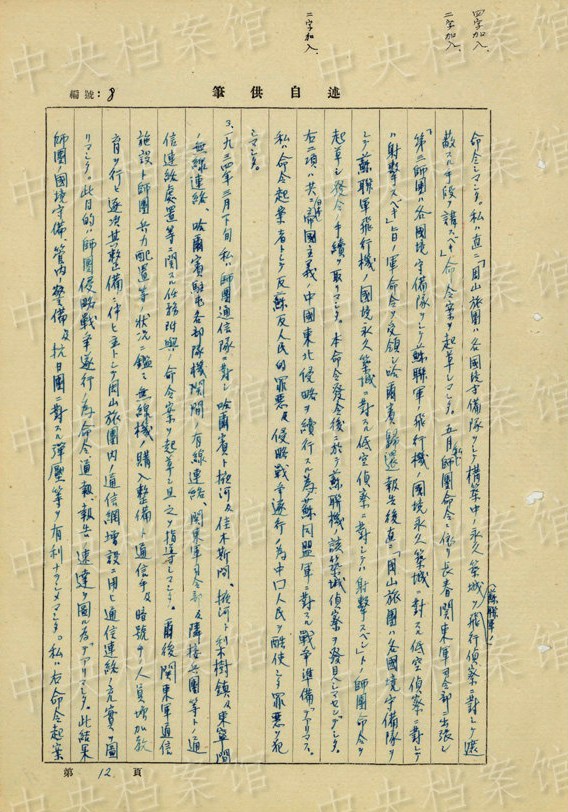 四字加入
二字加入
二字加入
筆供自述
編號：8
命令シマシタ。私ハ直ニ「円山旅團ハ各國境守備隊ヲシテ構築中ノ永久築城ヲ（蘇聯軍ノ）飛行偵察ニ對シテ遮
敝スル手段ヲ講スベキ」命令案ヲ起草シマシタ。五月私ハ師團命令ニ依リ長春関東軍司令部ニ出張シ
「第三師團ハ各國境守備隊ヲシテ蘇聯軍ノ飛行機ノ國境永久築城ニ對スル低空偵察ニ對シテ
ハ射擊スベキ」旨ノ軍命令ヲ受領シ哈爾賓歸還報告後直ニ「円山旅團ハ各國境守備隊ヲ
シテ蘇聯軍飛行機ノ國境永久築城ニ對スル低空偵察ニ對シテハ射擊スベシ」トノ師團命令ヲ
起草シ發令ノ手續ヲ取リマシタ。本命令發令後ニ於テ蘇聯機ノ該築城偵察ヲ發見シマセンデシタ。
右二項ハ共ニ日本帝國主義ノ中國東北侵略ヲ續行スル為蘇同盟軍ニ對スル戰爭準備デアリマス。
私ハ命令起案者トシテ反蘇反人民的罪惡及侵略戰爭遂行ノ為中国人民ヲ酷使シタ罪惡ヲ犯
シマシタ。
3、一九三四年三月下旬私ハ師團通信隊ニ對シ哈爾賓ト掖河及佳木斯間、掖河ト梨樹鎮及東寧間
ノ無線連絡、哈爾賓駐屯各部隊機関間ノ有線連絡、関東軍司令部及隣接兵團等トノ通
信連絡處置等ニ関スル任務附與ノ命令案ヲ起草シ且之ヲ指導シマシタ。爾後関東軍通信
施設ト師團兵力配置等ノ狀況ニ鑑ミ無線機ノ購入整備ト通信手及暗號手ノ人員增加教
育ヲ行ヒ逐次其整備ニ伴ヒ主トシテ円山旅團内ノ通信網增設ニ用ヒ通信連絡ノ充實ヲ圖
リマシタ。此目的ハ師團侵略戰爭遂行ノ為命令通報、報告ノ速達ヲ圖ル為デアリマシタ。此結果
師團國境守備、管内警備及抗日團ニ對スル彈壓等ヲ有利ナラシメマシタ。私ハ右命令起案
第 12 頁
中央档案馆